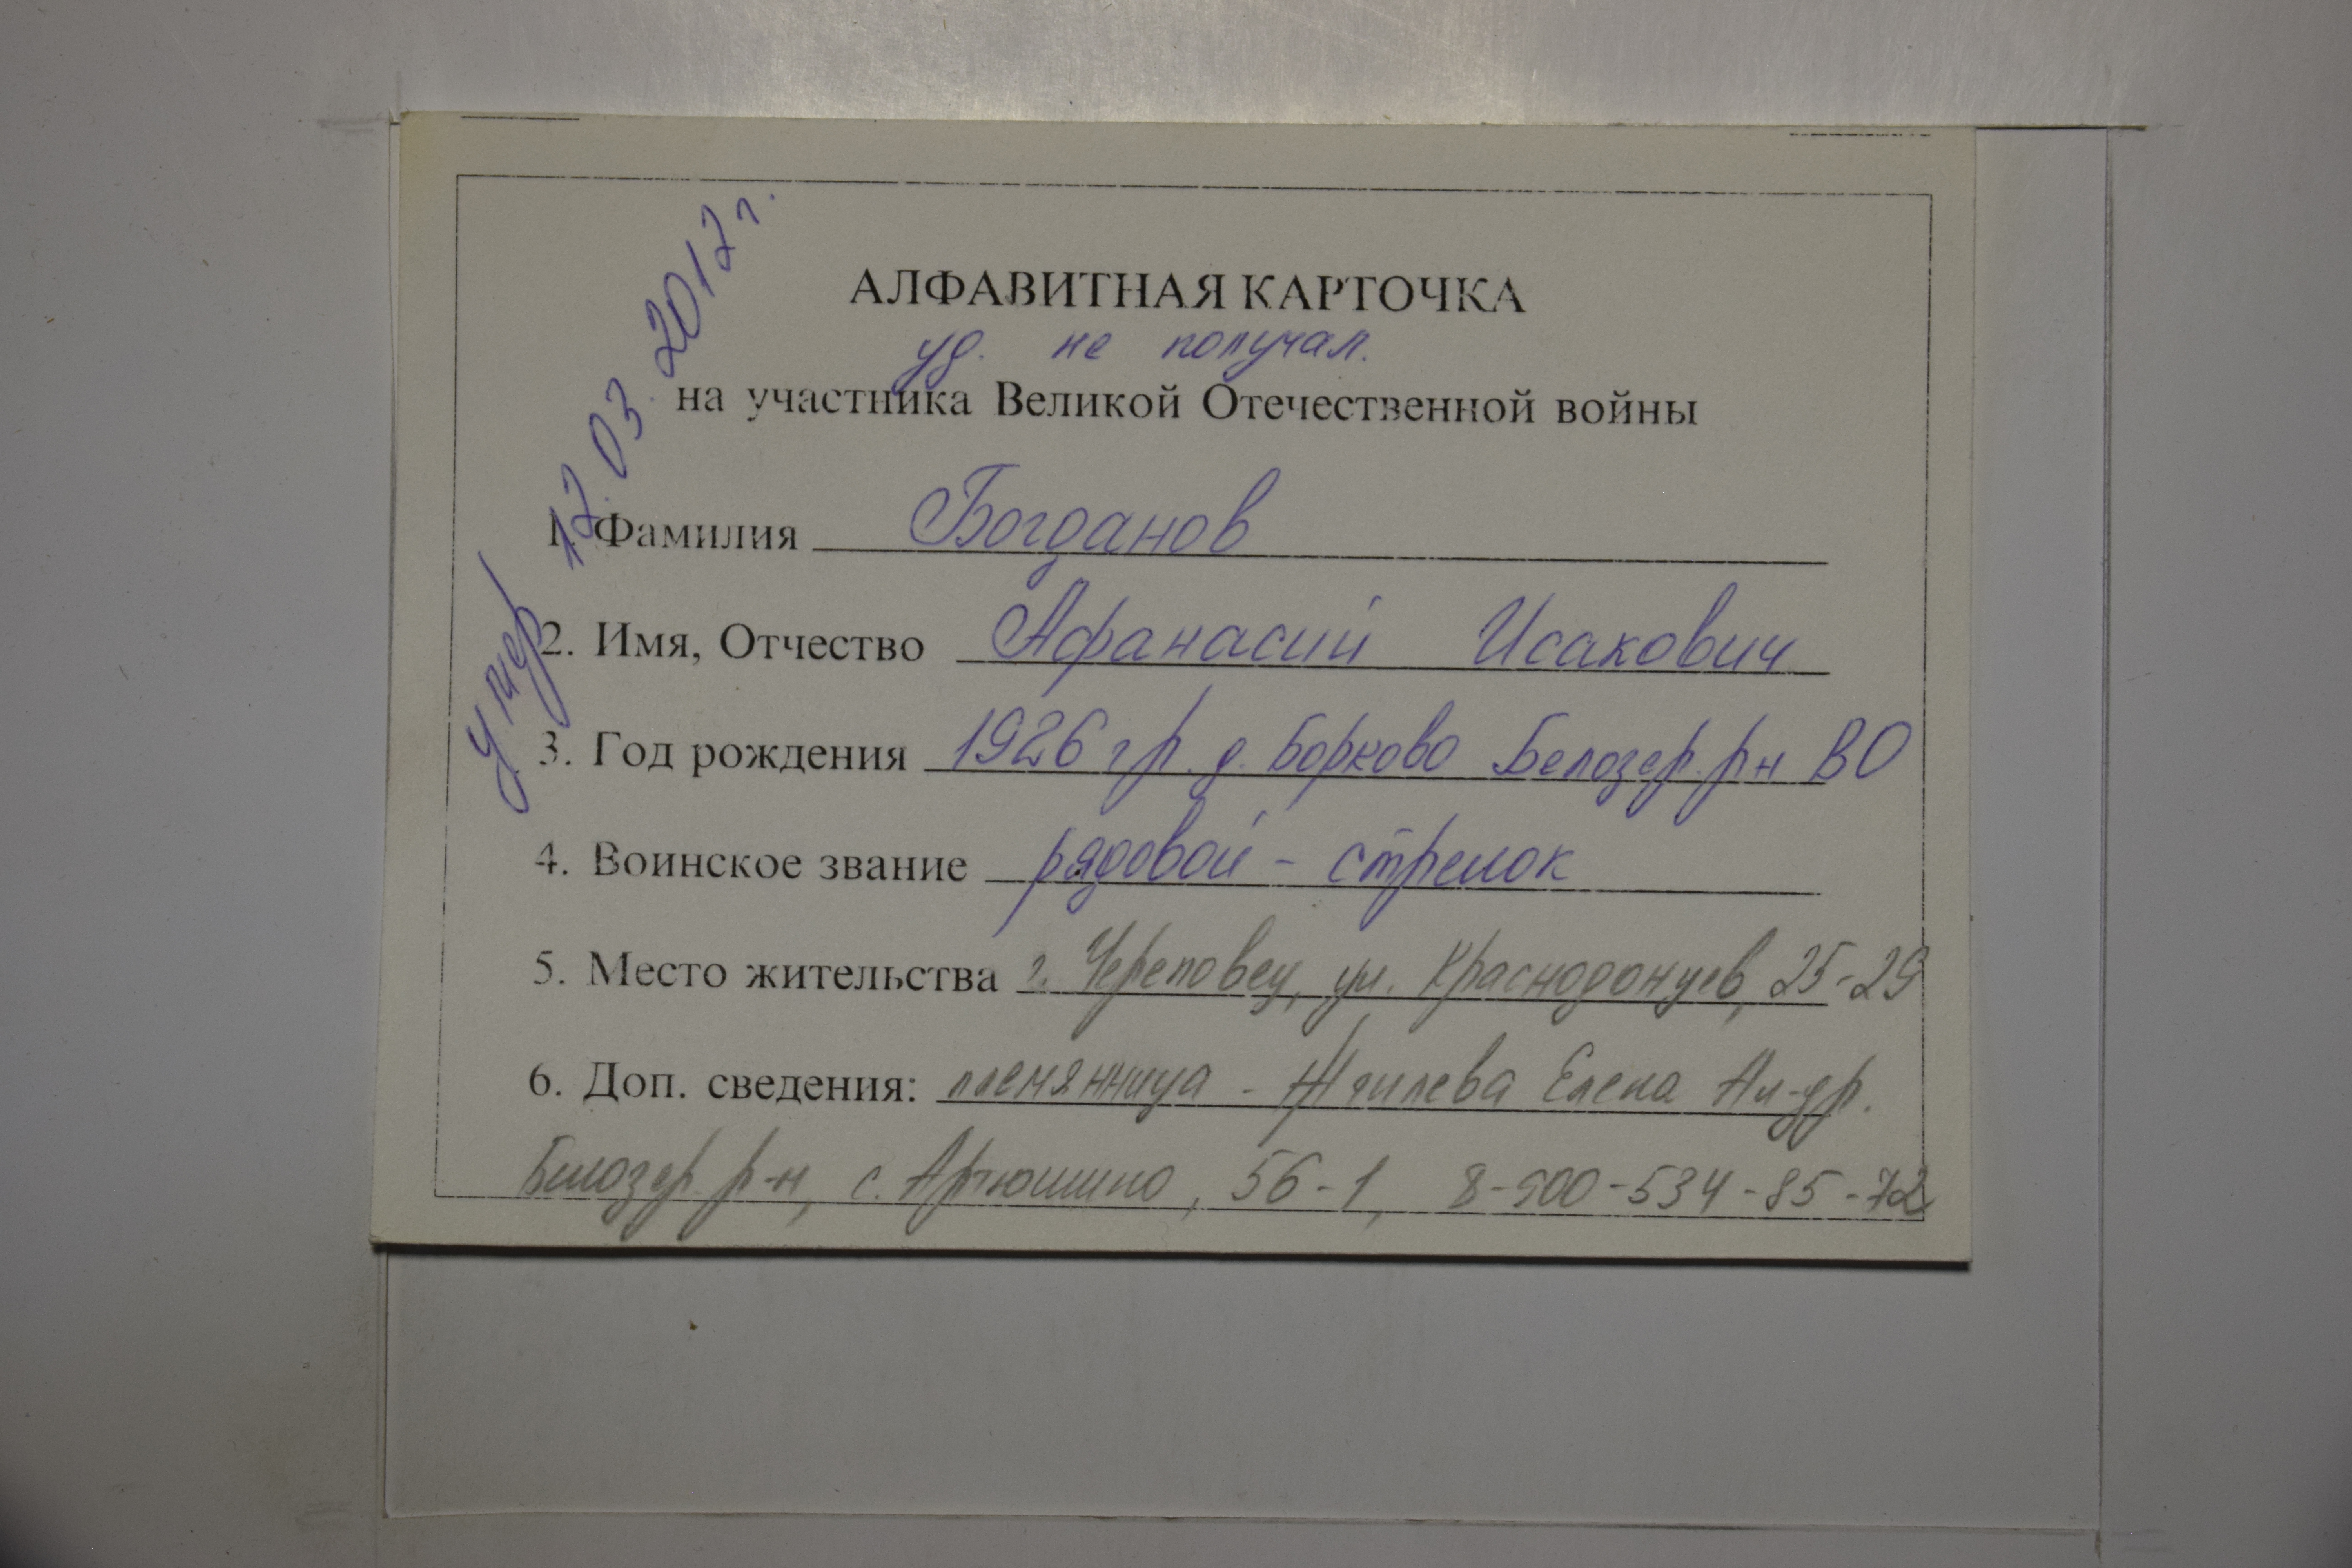 АЛФАВИТНАЯ КАРТОЧКА
уд. не получал.
на участника Великой Отечественной войны
умер 12.03.2012 г.
1. Фамилия Богданов
2. Имя, Отчество Афанасий Исакович
3. Год рождения 1926 гр. д. Борково Белозер. р-н ВО
4. Воинское звание рядовой - стрелок
5. Место жительства г. Череповец, ул. Краснодонцев, 25-29
6. Доп. сведения: племянница - Елена Ал-др.
Белозер. р-н, с. Артюшино, 56-1, 8-900-534-85-72